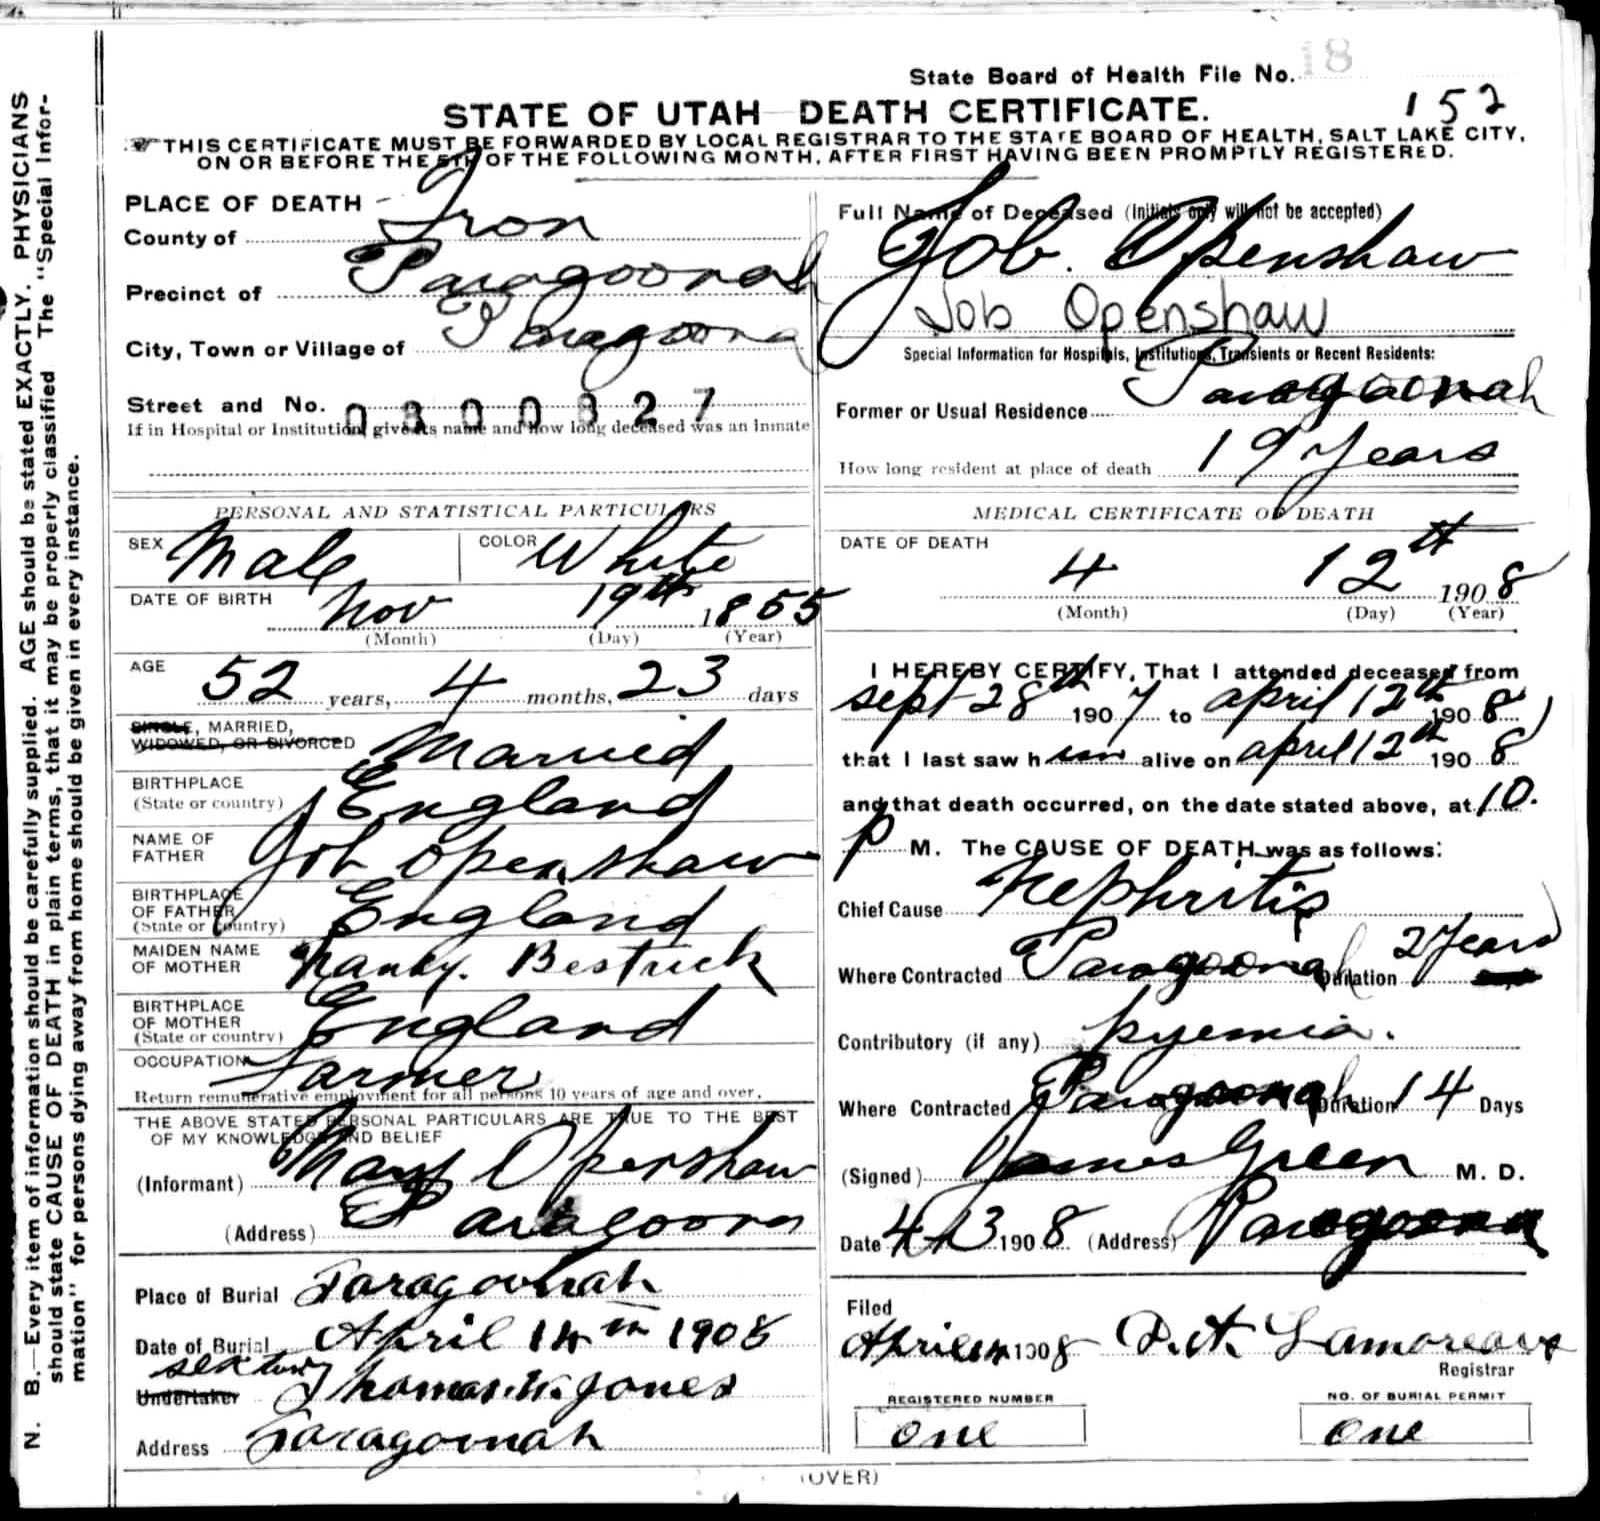 State Board of Health File No. 18
152
STATE OF UTAH DEATH CERTIFICATE.
THIS CERTIFICATE MUST BE FORWARDED BY LOCAL REGISTRAR TO THE STATE BOARD OF HEALTH, SALT LAKE CITY,
ON OR BEFORE THE 5TH OF THE FOLLOWING MONTH, AFTER FIRST HAVING BEEN PROMPTLY REGISTERED.
PLACE OF DEATH
County of Iron
Precinct of Paragoonah
City, Town or Village of Paragoona
Street and No. 0300327
If in Hospital or Institution, give its name and how long deceased was an Inmate
Full Name of Deceased (Initials only will not be accepted)
Job. Openshaw
Job Openshaw
Special Information for Hospitals, Institutions, Transients or Recent Residents:
Former or Usual Residence Paragoonah
How long resident at place of death 19 Years
PERSONAL AND STATISTICAL PARTICULARS
SEX Male COLOR White
DATE OF BIRTH Nov 19th 1855
(Month) (Day) (Year)
AGE 52 years, 4 months, 23 days
SINGLE, MARRIED,
WIDOWED, OR DIVORCED Married
BIRTHPLACE
(State or country) England
NAME OF
FATHER Job Openshaw
BIRTHPLACE
OF FATHER
(State or country) England
MAIDEN NAME
OF MOTHER
BIRTHPLACE
OF MOTHER
(State or country) England
OCCUPATION Farmer
Return remunerative employment for all persons 10 years of age and over.
THE ABOVE STATED PERSONAL PARTICULARS ARE TRUE TO THE BEST
OF MY KNOWLEDGE AND BELIEF
(Informant) Mary Openshaw
(Address) Paragoona
Place of Burial Paragoonah
Date of Burial April 14th 1908
sexton
Undertaker Thomas. W. Jones
Address Paragoonah
MEDICAL CERTIFICATE OF DEATH
DATE OF DEATH
4 12th 1908
(Month) (Day) (Year)
I HEREBY CERTIFY, That I attended deceased from
sept 28th 1907 to april 12th 1908
that I last saw him alive on april 12th 1908
and that death occurred, on the date stated above, at 10.
p M. The CAUSE OF DEATH was as follows:
Chief Cause Nephritis
Where Contracted Paragoonah Duration 2 Years
Contributory (if any) pyemia.
Where Contracted Paragoonah Duration 14 Days
(Signed) James Green M. D.
Date 4/13 1908 (Address) Paragoona
Filed
April 14 1908 Lamoreaux
Registrar
REGISTERED NUMBER
one
NO. OF BURIAL PERMIT
one
(OVER)
N. B.—Every item of information should be carefully supplied. AGE should be stated EXACTLY. PHYSICIANS
should state CAUSE OF DEATH in plain terms, that it may be properly classified. The "Special Infor-
mation" for persons dying away from home should be given in every instance.